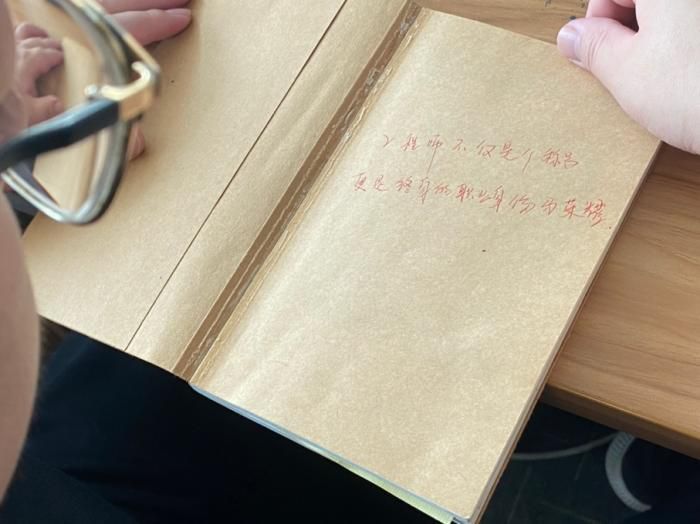 工程师不仅是个称号
更是终身的职业身份与荣耀.